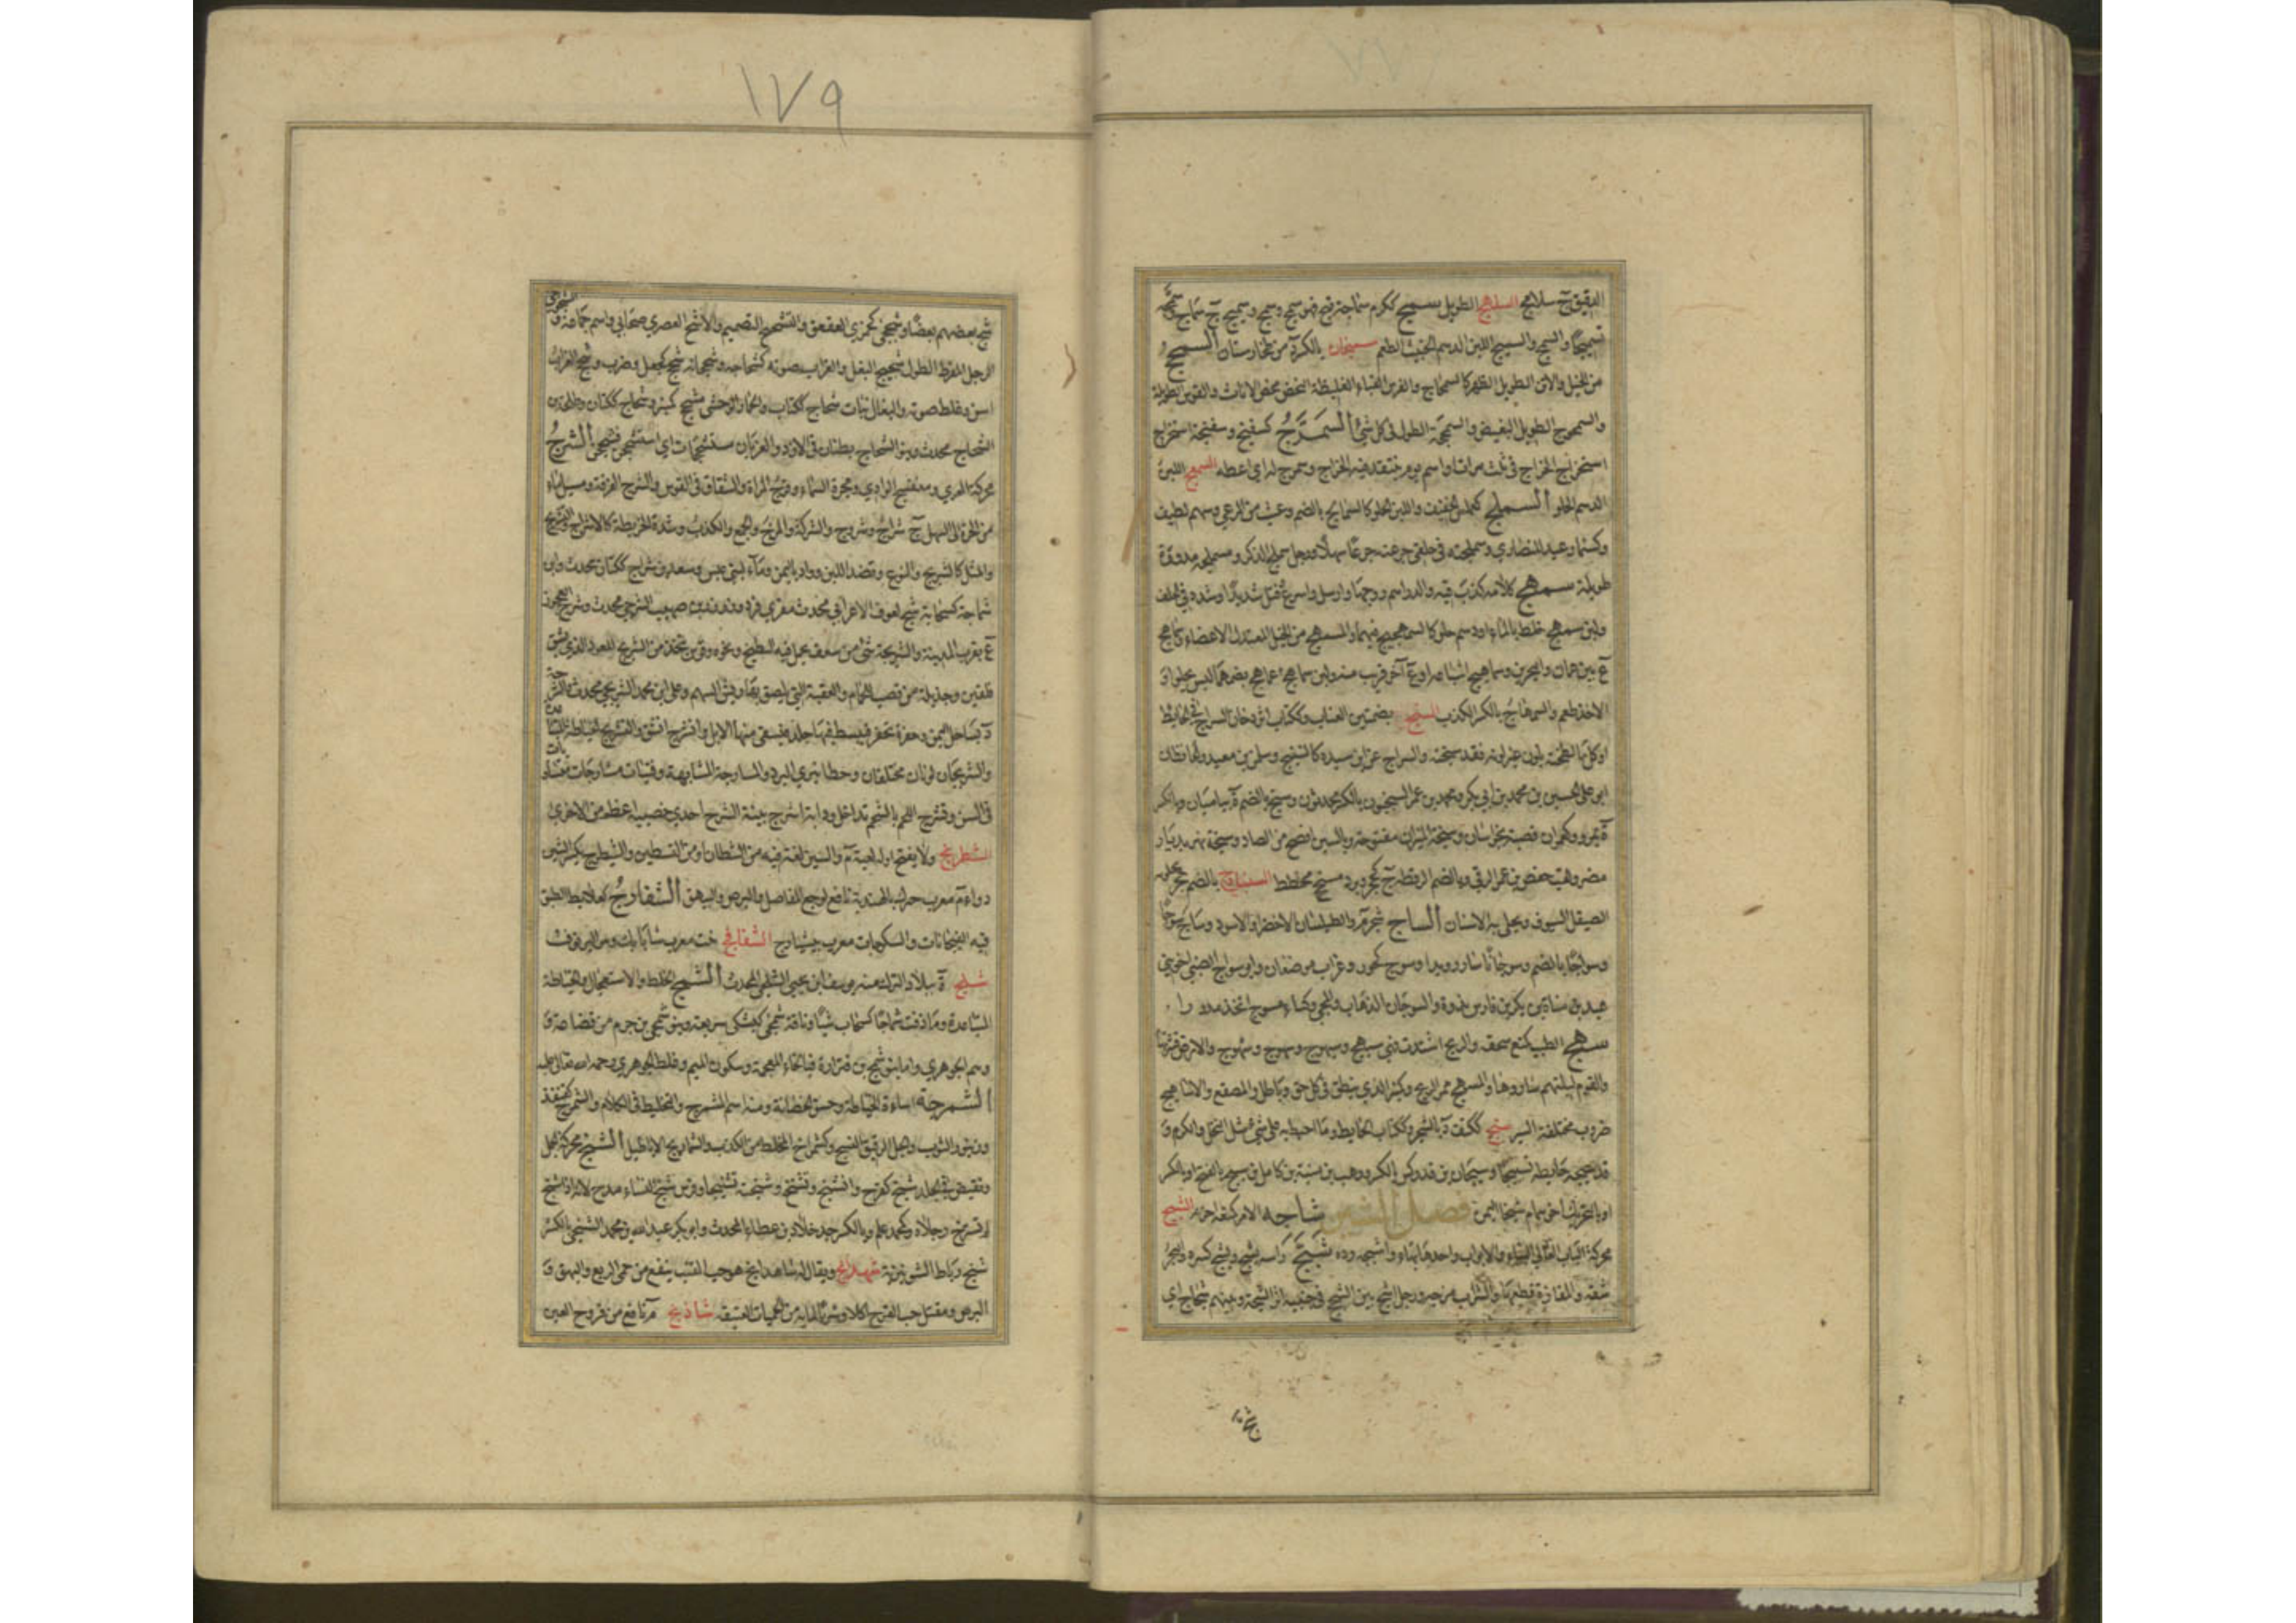 الدقيق ج سلاليج السلهج الطويل سمج ككرم سماجة قبح فهو سمج وسمج وسميج ج سماج
تسميجا والسمج والسميج اللبن الدسم الخبيث الطعم سمنجان بالكسر ة من طخارستان السمحج
من الخيل والاتن الطويل الظهر كالسمحاج والفرس القباء الغليظة النحض تخص الاناث والقوس الطويلة
والسمحوج الطويل البغيض والسمحجة الطول في كل شئ السمرج كسفنج وسفنجة استخراج
استخراج الخراج في ثلث مرات او اسم يوم ينتقد فيه الخراج وسمرج له اي اعطه السمعج اللبن
الدسم الحلو السملج كعملس الخفيف واللبن الحلو كالسمالج بالضم وعشب من المرعى وسهم لطيف
وكسنمار عيد للنصارى وسملجته في حلقي جرعته جرعا سهلا ورجل سملج الذكر ومسملجه مدورة
طويلة سمهج كلامه كذب فيه والدراهم روجها وارسل واسرع وفتل شديدا وشدد في الحلف
ولبن سمهج خلط بالماء او دسم حلو كالسمهجيج فيهما والمسمهج من الخيل المعتدل الاعضاء وسماهج
ع بين عمان والبحرين وسماهيج اشباعه او ع آخر قريب منه ولبن سماهج عماهج بضمهما ليس بحلو ولا
الاخذ طعم والسمهاج بالكسر الكذب السنج بضمتين العناب وككتاب اثر دخان السراج في الحائط
او كل ما لطخته بلون غير لونه فقد سنجته والسراج عن ابن سيده كالسنيج وسلم بن معبد والحافظان
ابو علي الحسين بن محمد بن ابي بكر ومحمد بن عمر السنجيون بالكسر محدثون وسنج بالضم ة بباميان وبالكسر
ة بمرو وكعمران قصبة بخراسان وسنجة الميزان مفتوحة وبالسين افصح من الصاد وسنجة نهر بديار
مضر ولقب حفص بن عمر الرقي وبالضم الرقطة ج كحجر وبرد مسنج مخطط السنباذج بالضم حجر يجلو به
الصيقل السيوف ويجلى به الاسنان الساج شجر م والطيلسان الاخضر او الاسود وساج سوجا
وسواجا بالضم وسوجانا سار رويدا وسوج كحور وغراب موضعان وابو سواج الضبي اخو بني
عبد مناة بن بكر بن فارس بذوة والسوجان الذهاب والمجي وكساء مسوج اتخذ مدورا
سهج الطيب كمنع سحقه والريح اشتدت فهي سيهج وسيهوج وسهوج وسهوج والارض قشرتها
والقوم ليلتهم ساروها والمسهج ممر الريح وكمنبر الذي ينطلق في كل حق وباطل والمصقع والاساهيج
ضروب مختلفة السير سيج ككتف د بالشحر وككتاب الحايط وما احيط به على شئ مثل النخل والكرم وقد
قد سيج حايطه تسييجا وسيجان بن فدوكس بالكسر ووهب بن منبه بن كامل بن سيج بالفتح او بالكسر
او بالتحريك اخو همام شيخا اليمن فصل الشين شاجه الامر كمنعه احزنه الشبج
محركة الباب العالي البناء والابواب واحدها بهاء واشبجه رده شجّ رأسه يشج ويشج كسره والبحر
شقه والمفازة قطعها والشراب مزجه ورجل اشج بين الشجج في جبينه اثر الشجة وبينهم شجاج اي
شج بعض
١٧٩
شج بعضهم بعضا وشججى كجمزى العقعق والتشجيج التصميم والاشج العصري صحابي واسم جماعة والشجوجى
الرجل المفرط الطول شحيج البغل والغراب صوته كشحاجه وشحجانه شحج كجعل وضرب وشحج الغراب
اسن وغلظ صوته والبغال بنات شحاج ككتاب والحمار الوحشي مشحج كمنبر وشحاج ككتان وطلحة بن
الشحاج محدث وبنو الشحاج بطنان في الازد والغربان مستشحجات اي استشحجن فشحجن الشرج
محركة العرى ومنفسح الوادي ومجرة السماء وفرج المراة والشقاق في القوس والشرج الفرقة ومسيل الماء
من الحرة الى السهل ج شراج وشروج والشركة والمزج والجمع والكذب وشدة الخريطة كالاشراج والتشريج
والمثل كالشريج والنوع ونضد اللبن وواد باليمن وماء لبني عبس وسعد بن شراج ككتان محدث وابن
شراجة كسحابة شيخ لعوف الاعرابي محدث مقري فرد وزرزر بن صهيب الشرجي محدث وشرج العجوز
ع بقرب المدينة والشريجة شئ من سعف يحمل فيه البطيخ ونحوه وقوس تتخذ من الشريج للعود الذي يشق
فلقين وجديلة من قصب للحمام والعقبة التي يلصق بها ريش السهم وعلي بن محمد الشريجي محدث والشرجة
د بساحل اليمن وحفرة تحفر فيبسط فيها جلد فيسقى منها الابل وانشرج انشق والتشريج الخياطة المتباعدة
والشريجان لونان مختلفان وخطا نيري البرد والمشارجة المشابهة وفتيات مشارجات متساويات
في السن وتشرج اللحم بالشحم تداخل ودابة اشرج بينة الشرج احدى خصييه اعظم من الاخرى
الشطرنج ولا يفتح اوله لعبة م والسين لغة فيه من الشطارة او من التسطير والشيطرج بكسر الشين
دواء م معرب جترك بالهندية نافع لوجع المفاصل والبرص والبهق الشفارج كعلابط الطبق
فيه الفيخات والسكرجات معرب بيشيارج الشفانج خت معرب شابانك وهو البرنوف
شلج ة ببلاد الترك منه يوسف ابن يحيى الشلجي المحدث الشمج الخلط والاستعجال والخياطة
المتباعدة وما ذقت شماجا كسحاب شيئا وناقة شمجى كبشكى سريعة وبنو شمجى بن جرم من قضاعة و
وهم الجوهري واما بنو شمخ بن فزارة فبالخاء المعجمة وسكون الميم وغلط الجوهري رحمه الله تعالى عليه
الشمرجة اساءة الخياطة وحسن الحضانة ومنه اسم الشمرج والتخليط في الكلام والشمرج كقنفذ
وزنبور الثوب والجل الرقيق النسج وكشمراخ المخلط من الكذب والشماريج الاباطيل الشنج محركة الجمل
وتقبض في الجلد شنج كفرح وانشنج وتشنج وشنجته تشنيجا وفرس شنج النساء مدح لانه اذا شنج
لم تسترخ رجلاه وكمحمد علم وبالكسر جد خلاد بن عطاء المحدث وابو بكر عبد الله بن محمد الشنجي بالكسر
شيخ رباط الشونيزية شهدانج ويقال له شاهدانج هو حب القنب ينفع من حمى الربع والبهق و
البرص ومقتل حب القرع اكلا وشربا لمايه من الحميات العتيقة شاذنج م نافع من قروح العين